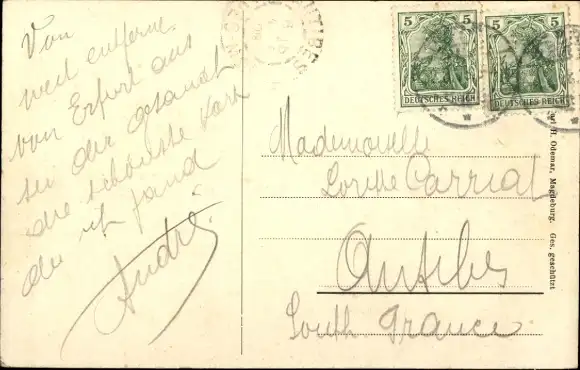 Von
weit entfernt
von Erfurt aus
sei dir gesandt
die schönste Karte
die ich fand
André.
5 5
DEUTSCHES REICH
5 5
DEUTSCHES REICH
Mademoiselle
Carrial
Antibes
South France
H. Odemar, Magdeburg. Ges. geschützt